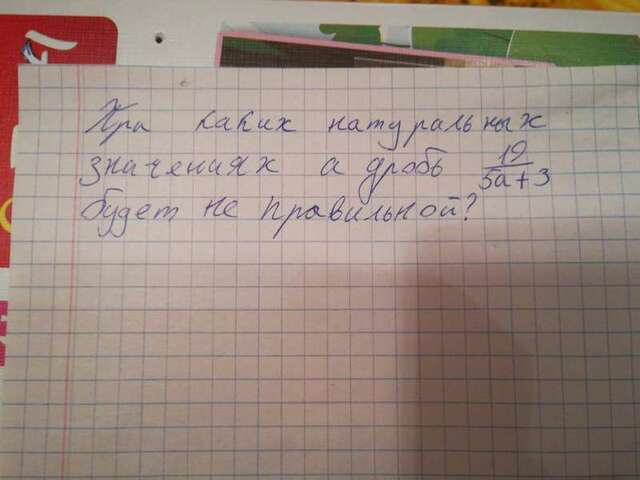 При каких натуральных
значениях а дробь 19/5а+3
будет не правильной?